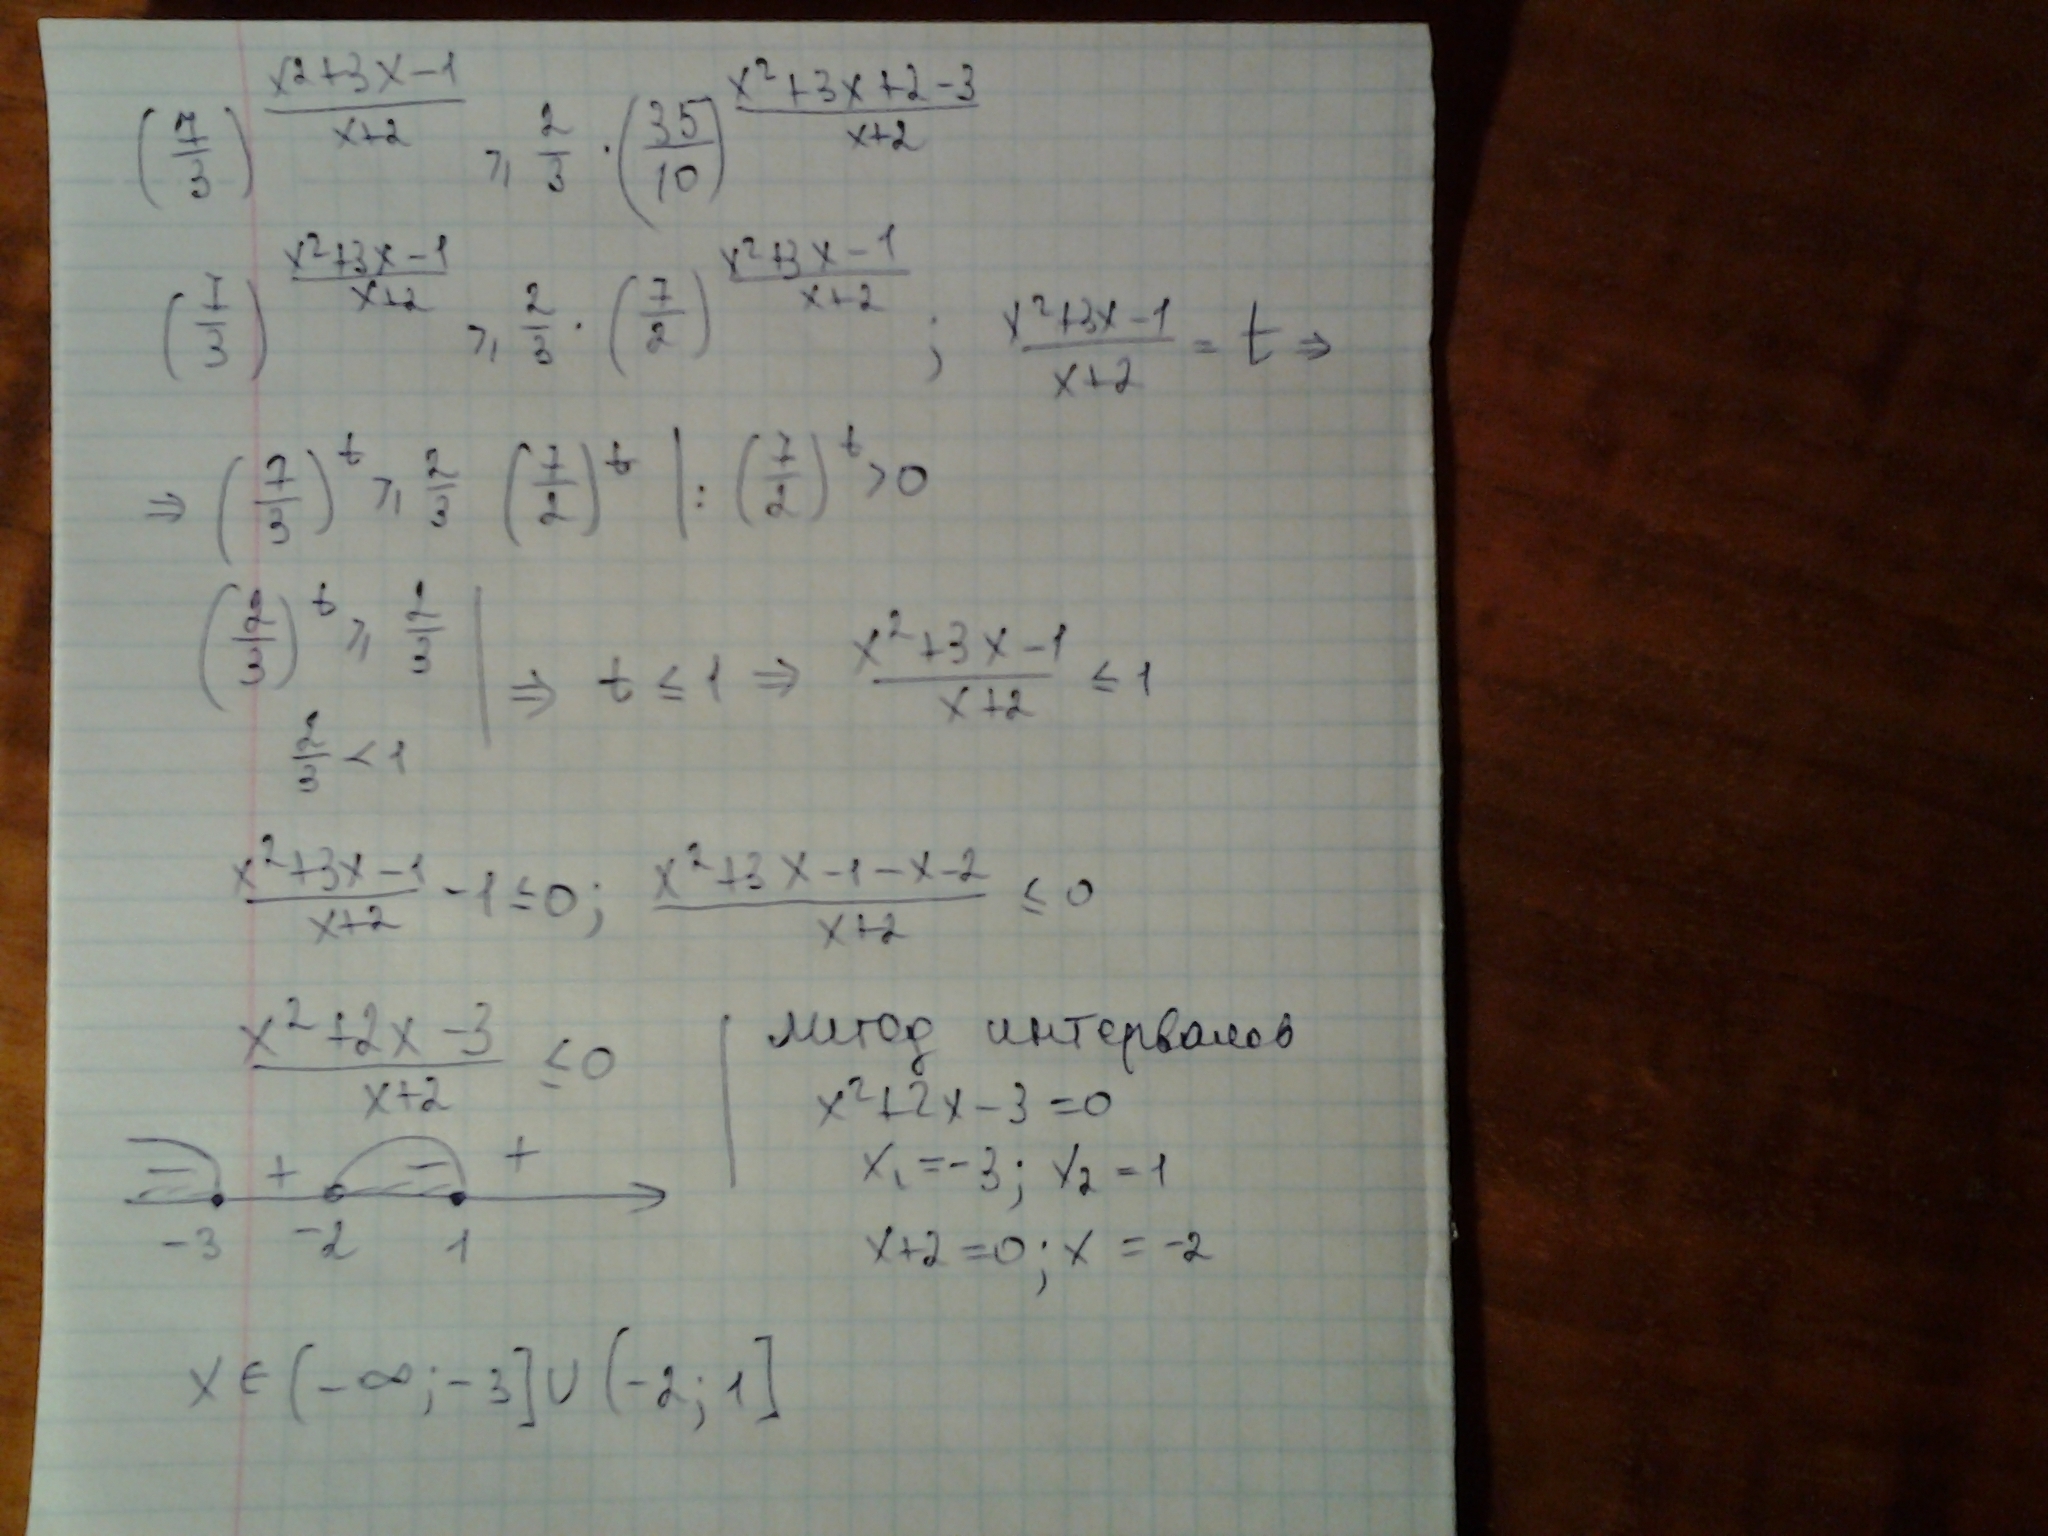 (7/3)^((x²+3x−1)/(x+2)) ⩾ 2/3 · (35/10)^((x²+3x+2−3)/(x+2))
(7/3)^((x²+3x−1)/(x+2)) ⩾ 2/3 · (7/2)^((x²+3x−1)/(x+2)) ; (x²+3x−1)/(x+2) = t ⇒
⇒ (7/3)^t ⩾ 2/3 (7/2)^t | : (7/2)^t > 0
(2/3)^t ⩾ 2/3 | ⇒ t ≤ 1 ⇒ (x²+3x−1)/(x+2) ≤ 1
2/3 < 1
(x²+3x−1)/(x+2) − 1 ≤ 0; (x²+3x−1−x−2)/(x+2) ≤ 0
(x²+2x−3)/(x+2) ≤ 0 | метод интервалов
x²+2x−3=0
x₁=−3; x₂=1
x+2=0; x=−2
− + − +
−3 −2 1
x ∈ (−∞; −3] ∪ (−2; 1]